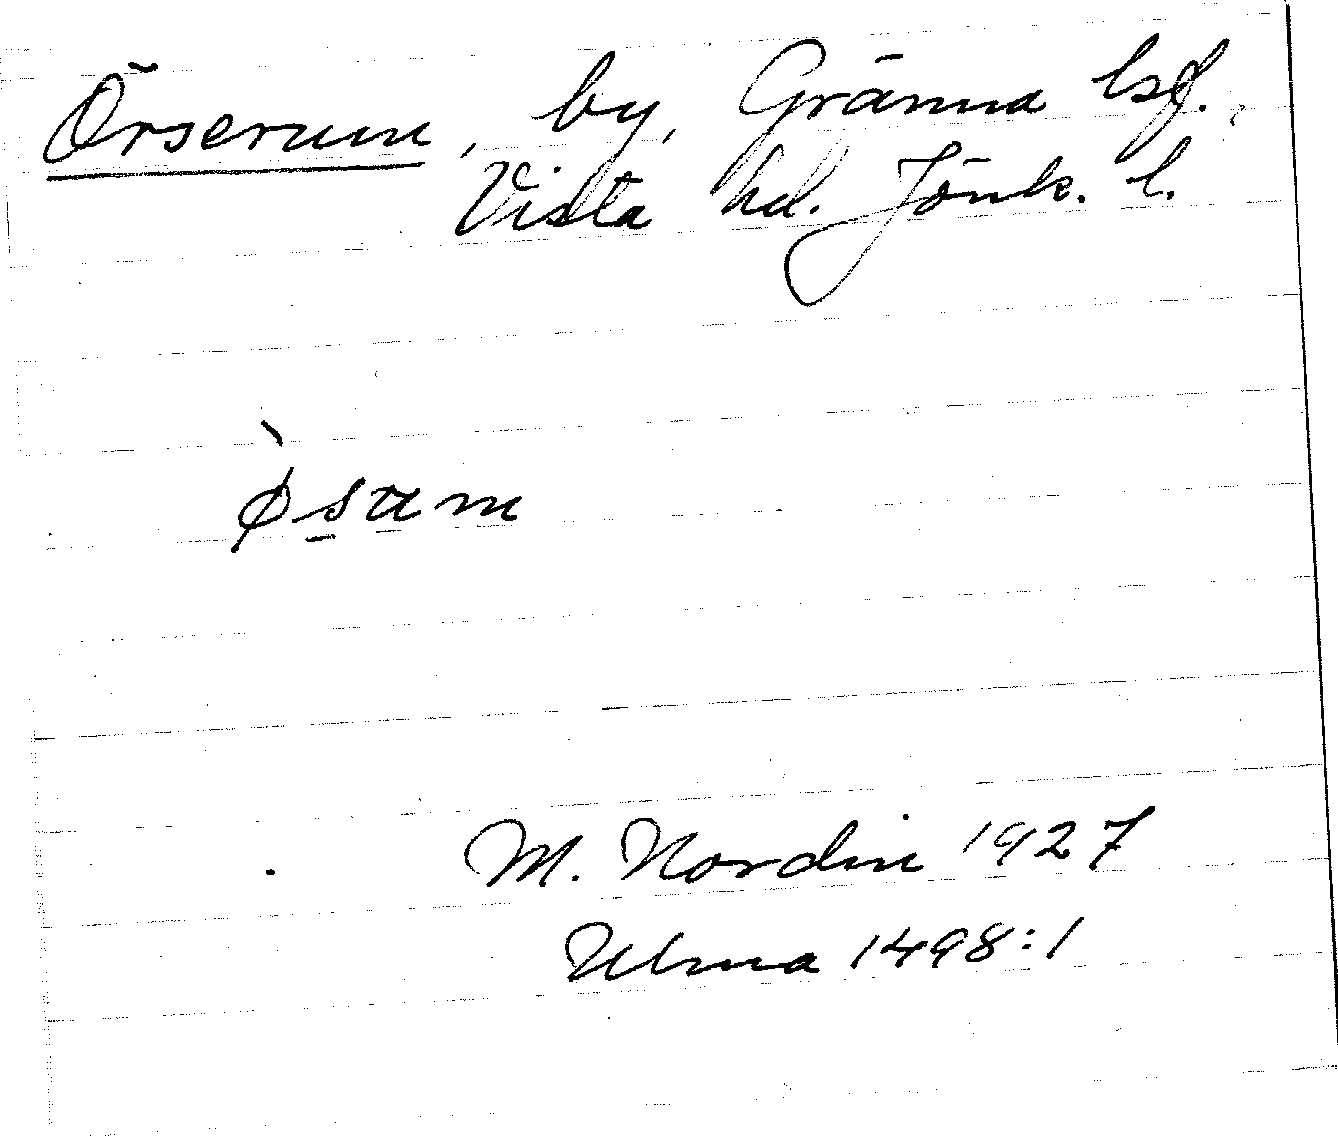 Örserum, by, Gränna lsf.,
Vista hd. Jönk. l.
ø̀s̠a̠m
M. Nordin 1927
Ulma 1498:1